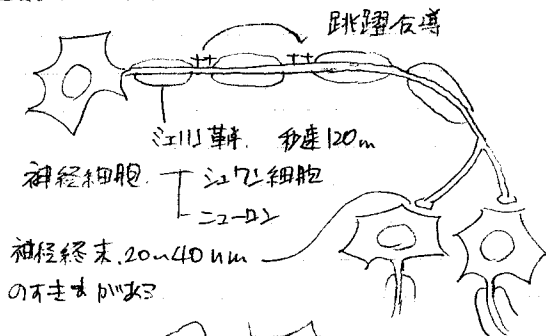 跳躍伝導
++ ++
ミエリン鞘. 秒速120m
神経細胞 シュワン細胞
ニューロン
神経終末. 20〜40nm
のすきまがある